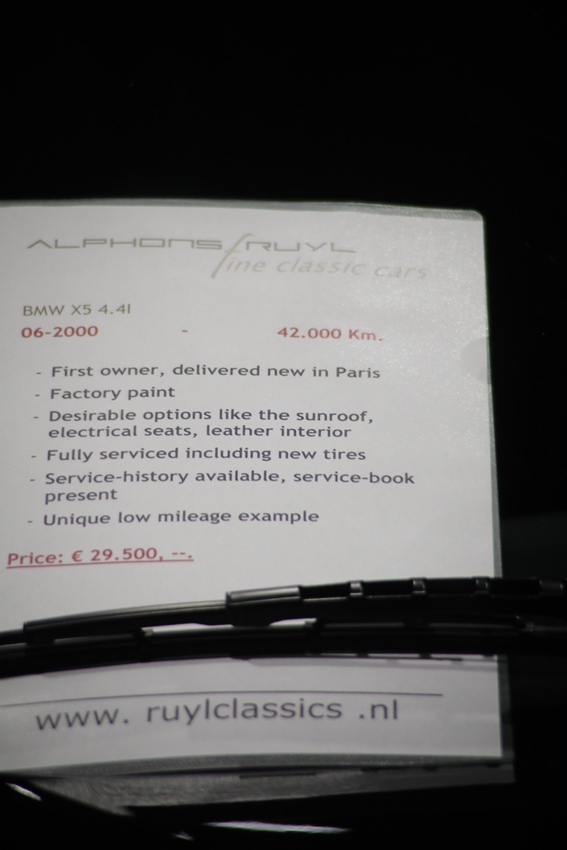 ALPHONS RUYL
fine classic cars
BMW X5 4.4I
06-2000 - 42.000 Km.
- First owner, delivered new in Paris
- Factory paint
- Desirable options like the sunroof,
electrical seats, leather interior
- Fully serviced including new tires
- Service-history available, service-book
present
- Unique low mileage example
Price: € 29.500, --.
www. ruylclassics .nl